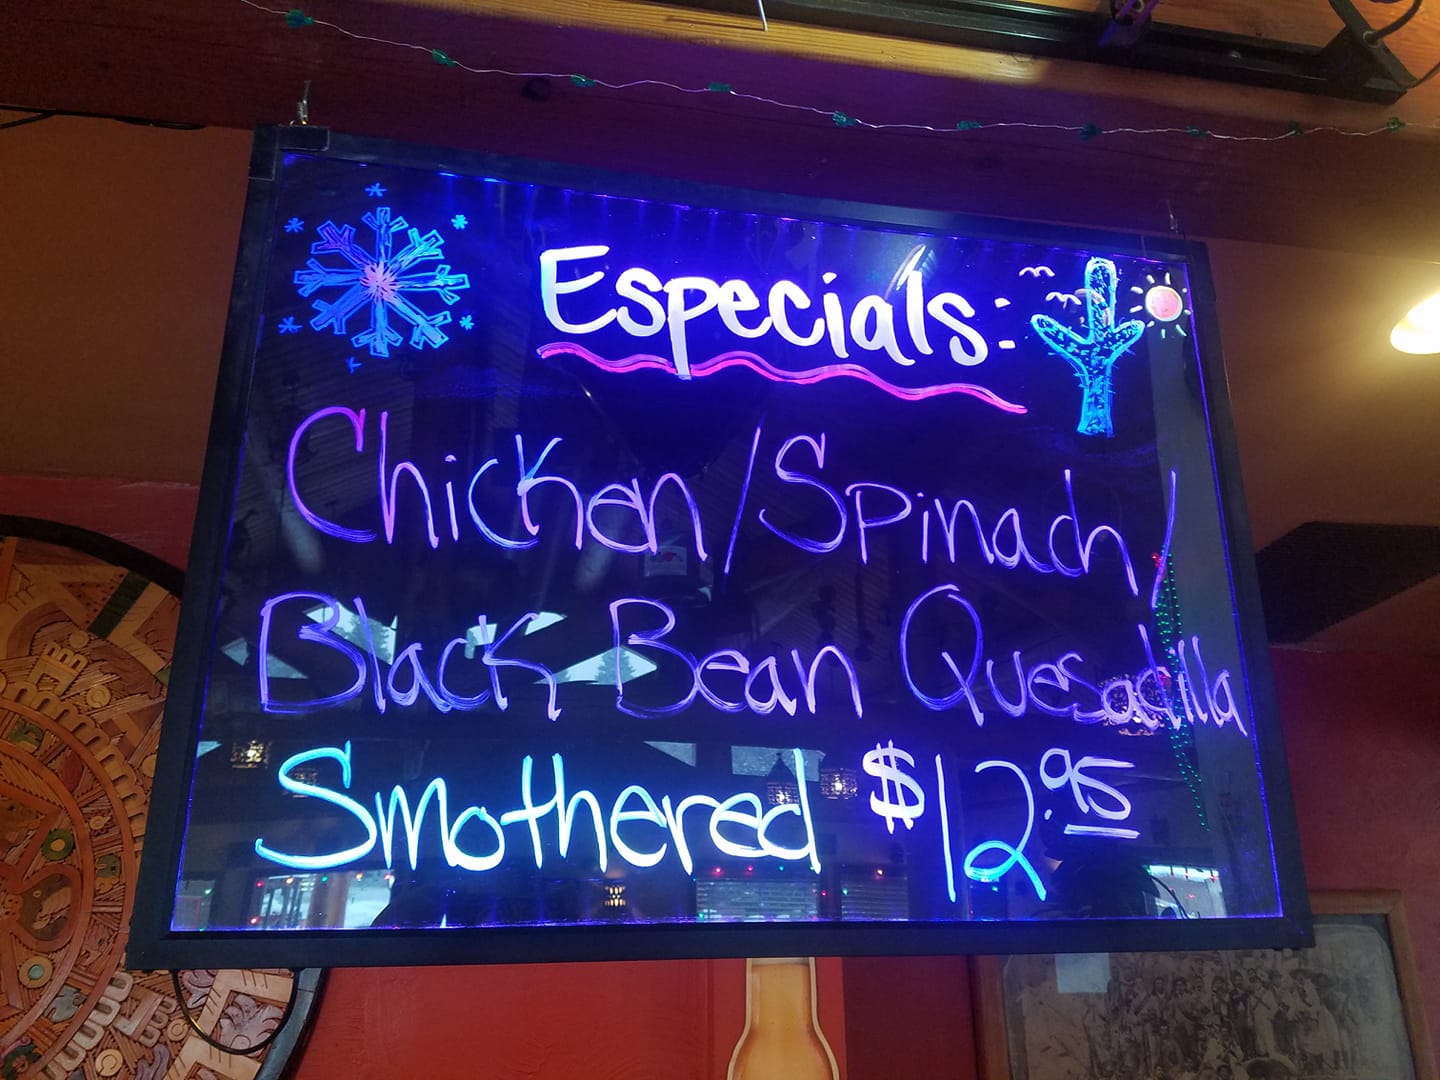 Especials:
Chicken/Spinach/
Black Bean Quesadilla
Smothered $12.95